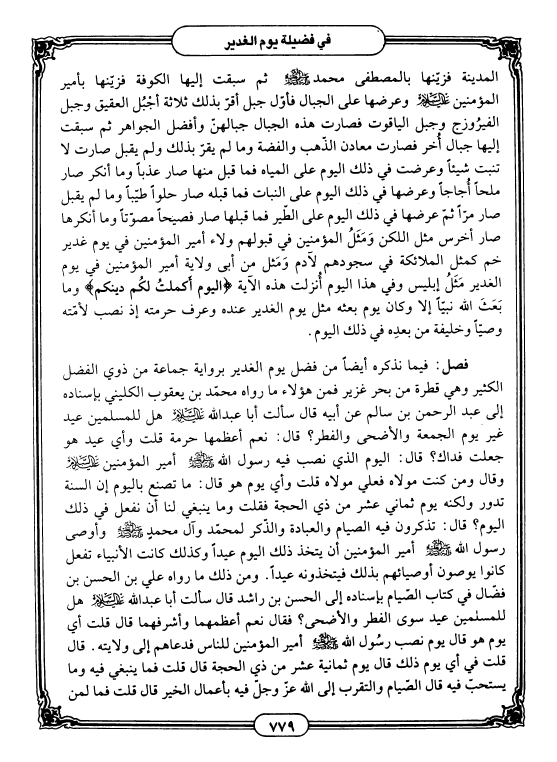 في فضيلة يوم الغدير
المدينة فزيّنها بالمصطفى محمد ﷺ ثم سبقت إليها الكوفة فزيّنها بأمير
المؤمنين عليه السلام وعرضها على الجبال فأوّل جبل أقرّ بذلك ثلاثة أجْبُل العقيق وجبل
الفيرُوزج وجبل الياقوت فصارت هذه الجبال جبالهنّ وأفضل الجواهر ثم سبقت
إليها جبال أُخر فصارت معادن الذّهب والفضة وما لم يقرّ بذلك ولم يقبل صارت لا
تنبت شيئاً وعرضت في ذلك اليوم على المياه فما قبل منها صار عذباً وما أنكر صار
ملحاً أُجاجاً وعرضها في ذلك اليوم على النبات فما قبله صار حلواً طيّباً وما لم يقبل
صار مرّاً ثمّ عرضها في ذلك اليوم على الطّير فما قبلها صار فصيحاً مصوّتاً وما أنكرها
صار أخرس مثل اللكن وَمَثَلُ المؤمنين في قبولهم ولاء أمير المؤمنين في يوم غدير
خم كمثل الملائكة في سجودهم لآدم وَمَثل من أبى ولاية أمير المؤمنين في يوم
الغدير مَثَلُ إبليس وفي هذا اليوم أُنزلت هذه الآية ﴿اليوم أكملتُ لكُم دينكم﴾ وما
بَعَثَ الله نبيّاً إلا وكان يوم بعثه مثل يوم الغدير عنده وعرف حرمته إذ نصب لأمّته
وصيّاً وخليفة من بعدِه في ذلك اليوم.
فصل: فيما نذكره أيضاً من فضل يوم الغدير برواية جماعة من ذوي الفضل
الكثير وهي قطرة من بحر غزير فمن هؤلاء ما رواه محمّد بن يعقوب الكليني بإسناده
إلى عبد الرحمن بن سالم عن أبيه قال سألت أبا عبدالله عليه السلام هل للمسلمين عيد
غير يوم الجمعة والأضحى والفطر؟ قال: نعم أعظمها حرمة قلت وأي عيد هو
جعلت فداك؟ قال: اليوم الذي نصب فيه رسول الله ﷺ أمير المؤمنين عليه السلام
وقال ومن كنت مولاه فعلي مولاه قلت وأي يوم هو قال: ما تصنع باليوم إن السنة
تدور ولكنه يوم ثماني عشر من ذي الحجة فقلت وما ينبغي لنا أن نفعل في ذلك
اليوم؟ قال: تذكرون فيه الصيام والعبادة والذّكر لمحمّد وآل محمدٍ ﷺ وأوصى
رسول الله ﷺ أمير المؤمنين أن يتخذ ذلك اليوم عيداً وكذلك كانت الأنبياء تفعل
كانوا يوصون أوصيائهم بذلك فيتخذونه عيداً. ومن ذلك ما رواه علي بن الحسن بن
فضّال في كتاب الصّيام بإسناده إلى الحسن بن راشد قال سألت أبا عبدالله عليه السلام هل
للمسلمين عيد سوى الفطر والأضحى؟ فقال نعم أعظمهما وأشرفهما قال قلت أي
يوم هو قال يوم نصب رسُول الله ﷺ أمير المؤمنين للناس فدعاهم إلى ولايته. قال
قلت في أي يوم ذلك قال يوم ثمانية عشر من ذي الحجة قال قلت فما ينبغي فيه وما
يستحبّ فيه قال الصّيام والتقرب إلى الله عزّ وجلّ فيه بأعمال الخير قال قلت فما لمن
٧٧٩